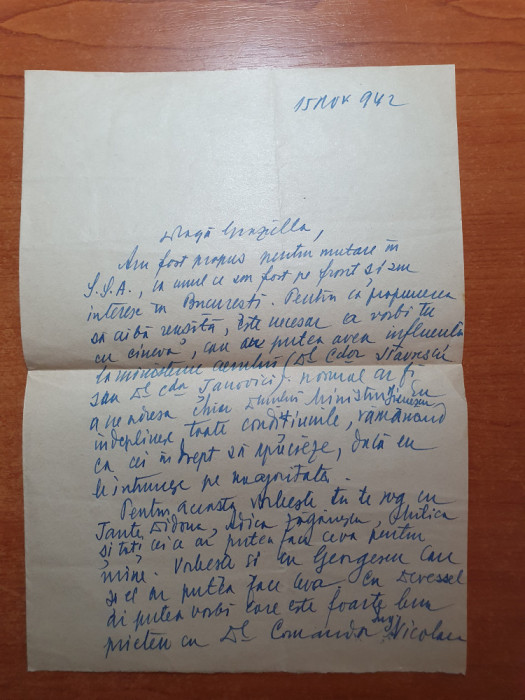 15 Nov 942
Dragă Graziella,
Am fost propus pentru mutare în
S.S.A., ca unul ce am fost pe front și am
interese în București. Pentru ca propunerea
să aibă reușită, este necesar ca vorbi tu
cu cineva, care ar putea avea influență
la ministerul aerului (Dl Cdor Stavrescu
sau Dl Cdor Ianovici). normal ar fi
a ne adresa chiar Domnului Ministru. Eu
îndeplinesc toate condițiunile, rămânând
ca cei în drept să aprecieze, dacă eu
le întrunesc pe majoritatea.
Pentru aceasta vorbește tu te rog cu
Tante Didona,
și toți cei ce ar putea face ceva pentru
mine. Vorbește și cu Georgescu care
și el ar putea face ceva. Cu Devessel
ai putea vorbi care este foarte bun
prieten cu Dl Comandor ing. Nicolau